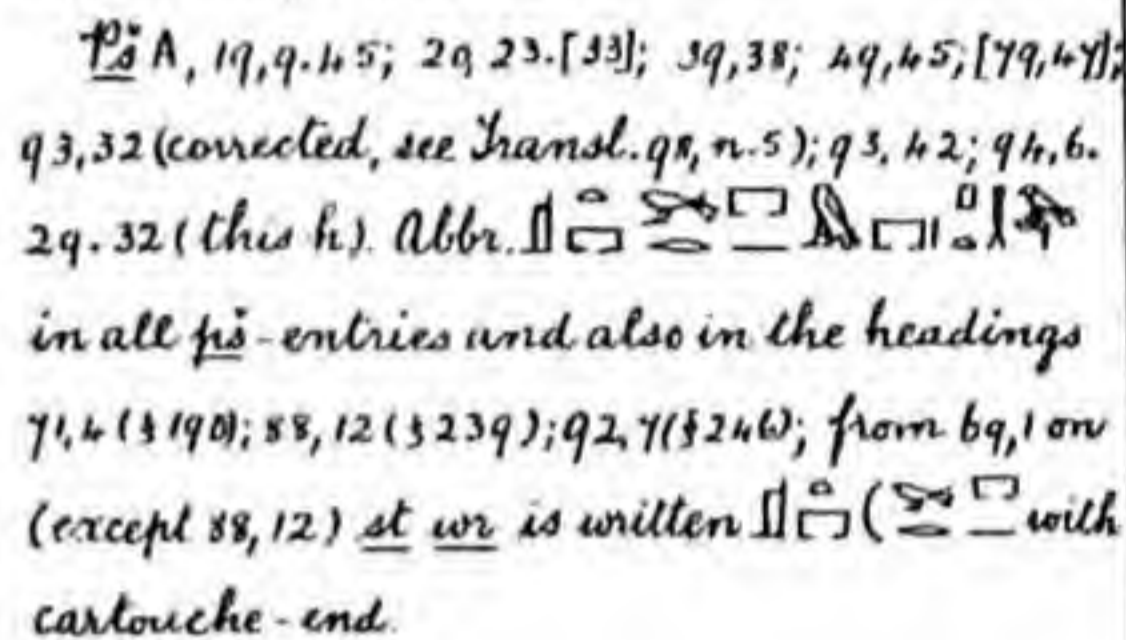 Pš A, 19,9.45; 20, 23.[33]; 39,38; 49,45; [79,47];
93,32 (corrected, see Transl. 98, n. 5); 93, 42; 94, 6.
29. 32 (this h). Abbr.
in all pš-entries and also in the headings
71,4 (§190); 88, 12 (§239); 92, 7 (§246); from 69,1 on
(except 88, 12) st wr is written ( with
cartouche-end.